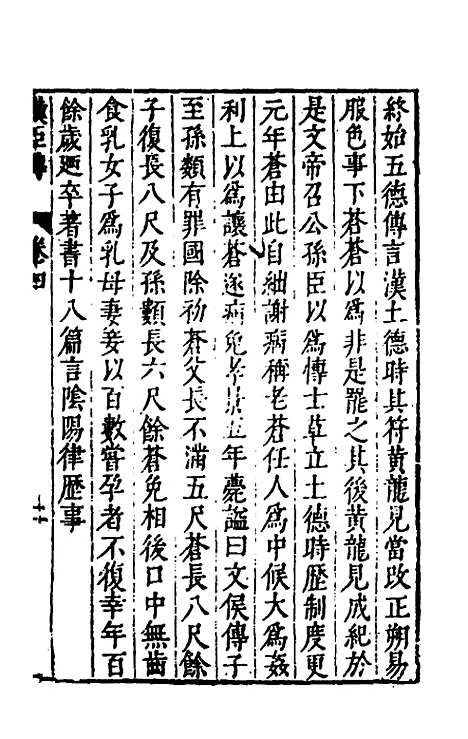 終始五德傳言漢土德時其符黃龍見當改正朔易
服色事下蒼蒼以爲非是罷之其後黃龍見成紀於
是文帝召公孫臣以爲博士草立土德時歷制度更
元年蒼由此自絀謝病稱老蒼任人爲中候大爲姦
利上以爲讓蒼遂病免孝景五年薨謚曰文侯傳子
至孫類有罪國除初蒼父長不滿五尺蒼長八尺餘
子復長八尺及孫類長六尺餘蒼免相後口中無齒
食乳女子爲乳母妻妾以百數嘗孕者不復幸年百
餘歲廼卒著書十八篇言陰陽律歷事
卷四